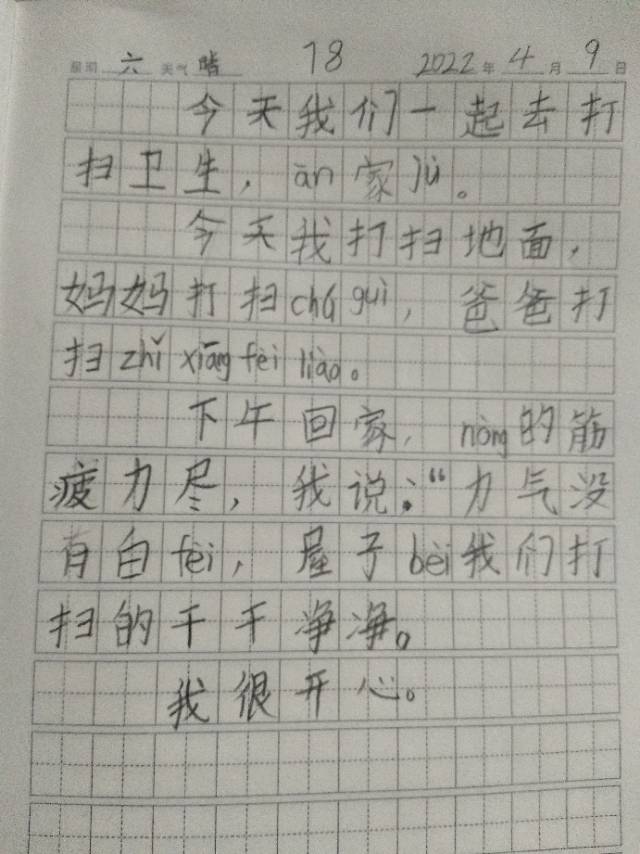 星期 六 天气 晴 18 2022 年 4 月 9 日
今天我们一起去打
扫卫生，ān家jù。
今天我打扫地面，
妈妈打扫chúguì，爸爸打
扫zhǐxiāngfèiliào。
下午回家，nòng的筋
疲力尽，我说："力气没
有白fèi，屋子bèi我们打
扫的干干净净。
我很开心。